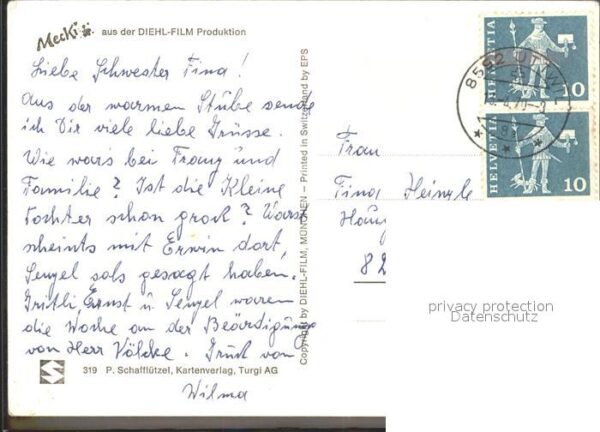 Mecki aus der DIEHL-FILM Produktion
Liebe Schwester Tina!
Aus der warmen Stube sende
ich Dir viele liebe Grüsse.
Wie war's bei Franz und
Familie? Ist die Kleine
Tochter schon gross? Warst
scheints mit Erwin dort,
Sengel sols gesagt haben.
Gritli, Ernst u. Sengel waren
die Woche an der Beärdigung
von Herr Völcke. Gruss von
Wilma
319 P. Schafflützel, Kartenverlag, Turgi AG
Copyright by DIEHL-FILM, MÜNCHEN – Printed in Switzerland by EPS
Frau
Tina Heinzle
82
HELVETIA 10
HELVETIA 10
8592 UTTWIL
privacy protection
Datenschutz